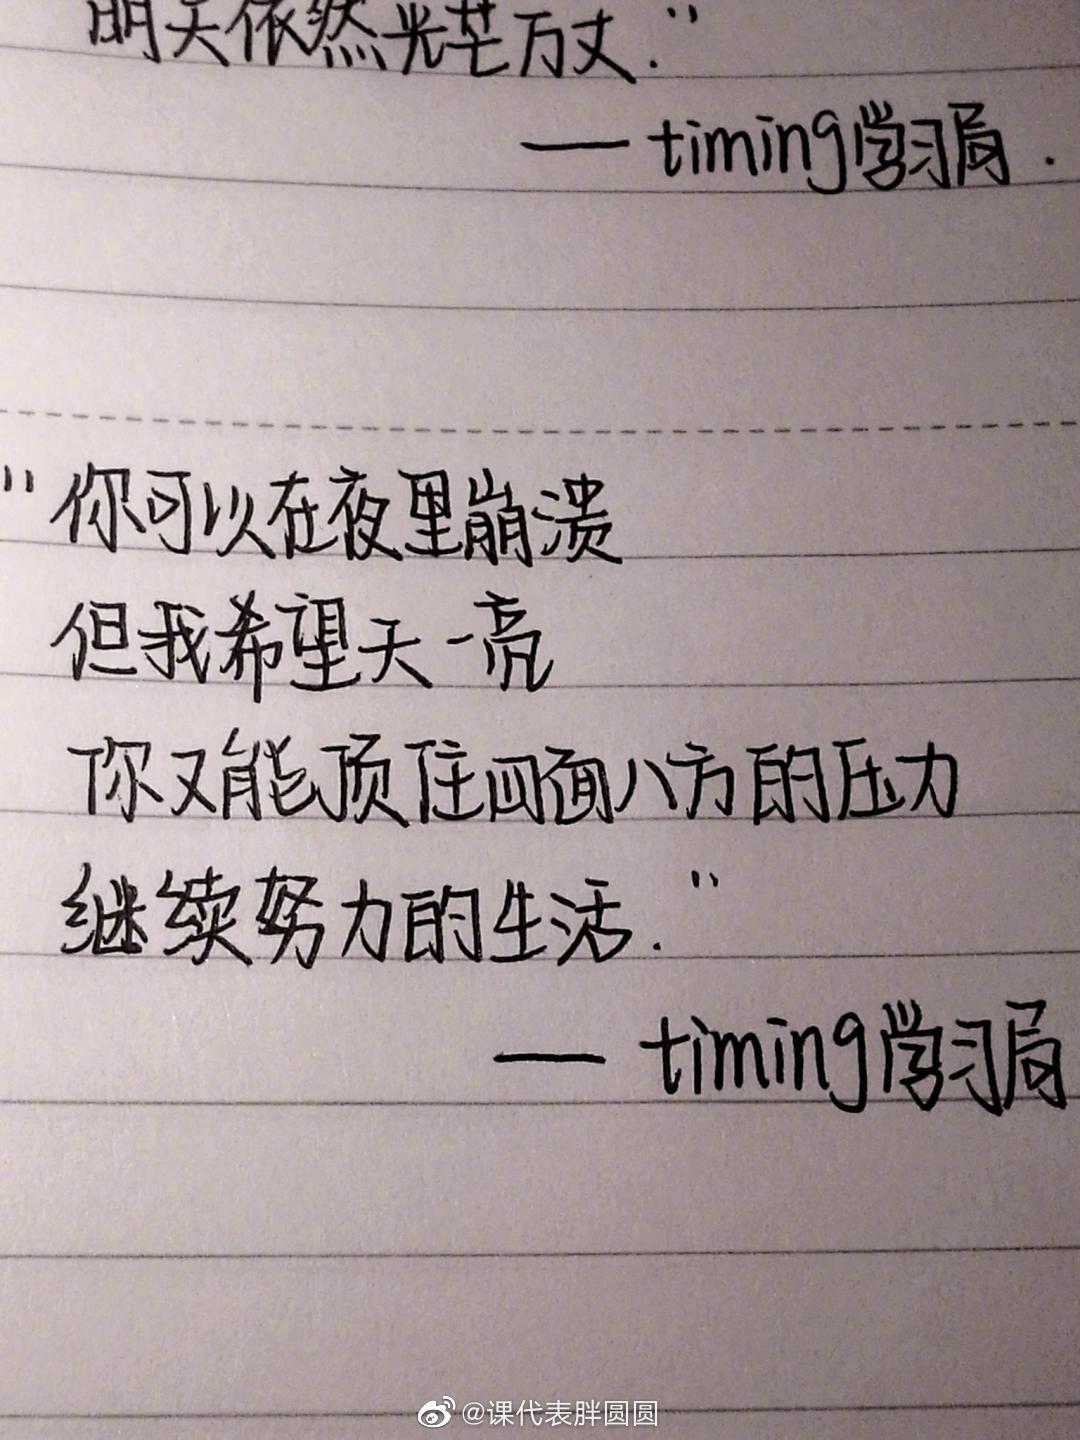 明天依然光芒万丈."
— timing学习局.
"你可以在夜里崩溃
但我希望天一亮
你又能顶住四面八方的压力
继续努力的生活."
— timing学习局
@课代表胖圆圆